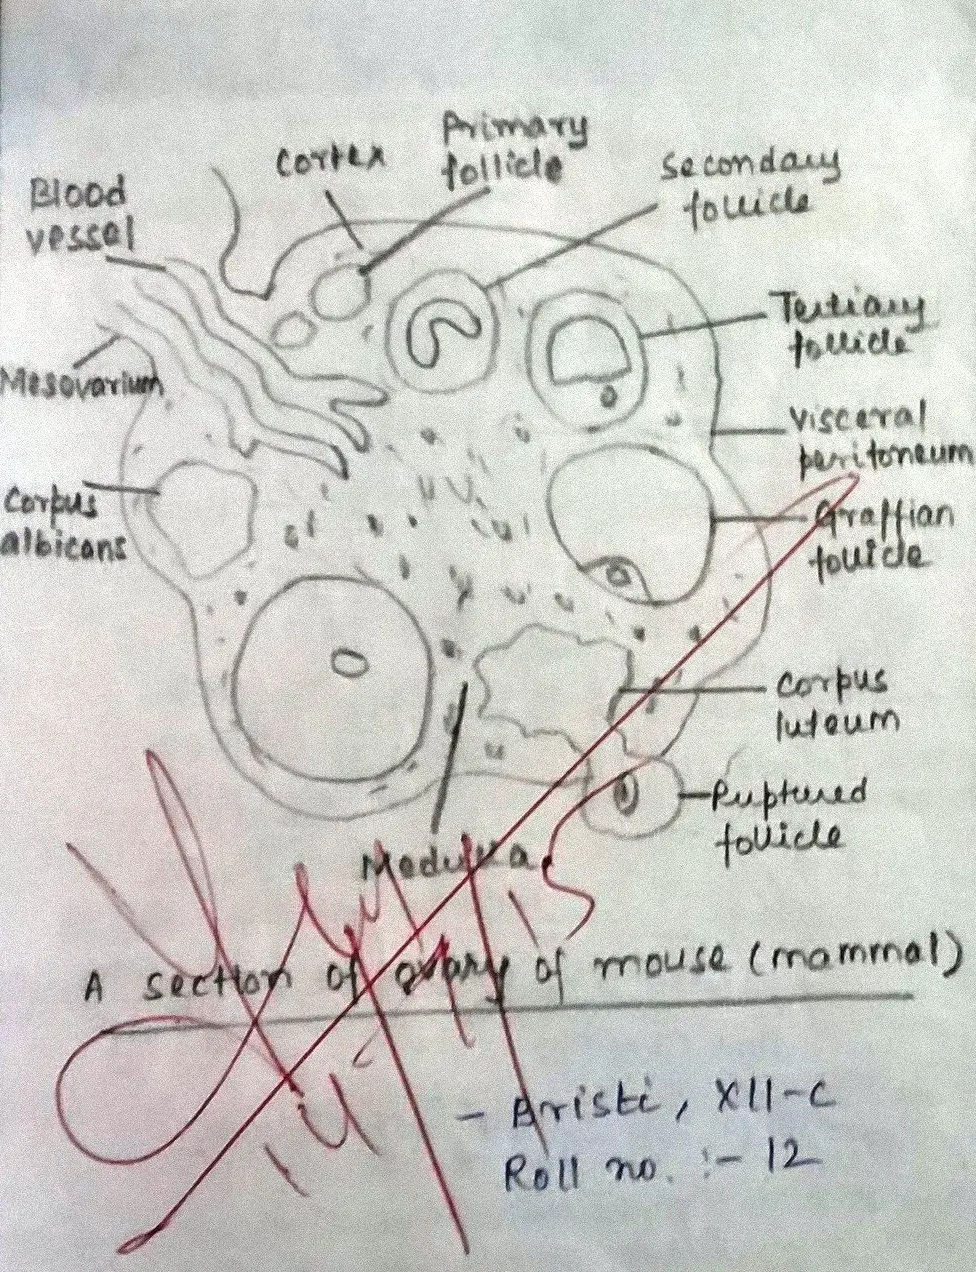 Cortex
Primary
follicle
Secondary
follicle
Blood
vessel
Tertiary
follicle
Mesovarium
Visceral
peritoneum
Corpus
albicans
Graffian
follicle
Corpus
luteum
Ruptured
follicle
Medulla
A section of ovary of mouse (mammal)
- Aristi, XII-C
Roll no. :- 12